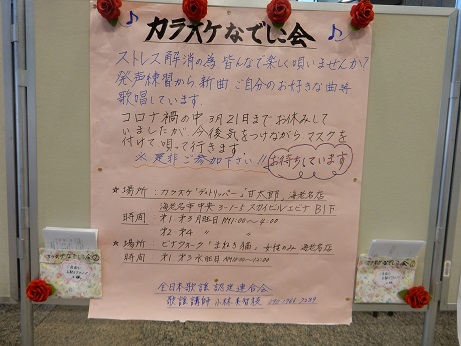 ♪ カラオケなでしこ会 ♪
ストレス解消の為 皆んなで楽しく唄いませんか?
発声練習から新曲 ご自分のお好きな曲等
歌唱しています.
コロナ禍の中 3月21日までお休みして
いましたが 今後気をつけながらマスクを
付けて唄って行きます.
※是非ご参加下さい!! お待ちしています
★場所:カラオケ
海老名店
海老名市中央3-1-5 スカイビルエビナ B1F
時间 オ1オ3月旺日 AM11:00~4:00
オ2オ4 〃 〃
★場所:ビナウォーク「まねき猫」女性のみ 海老名店
時間 オ1オ3
全日本歌謡認定連合会
歌謡講師 小林